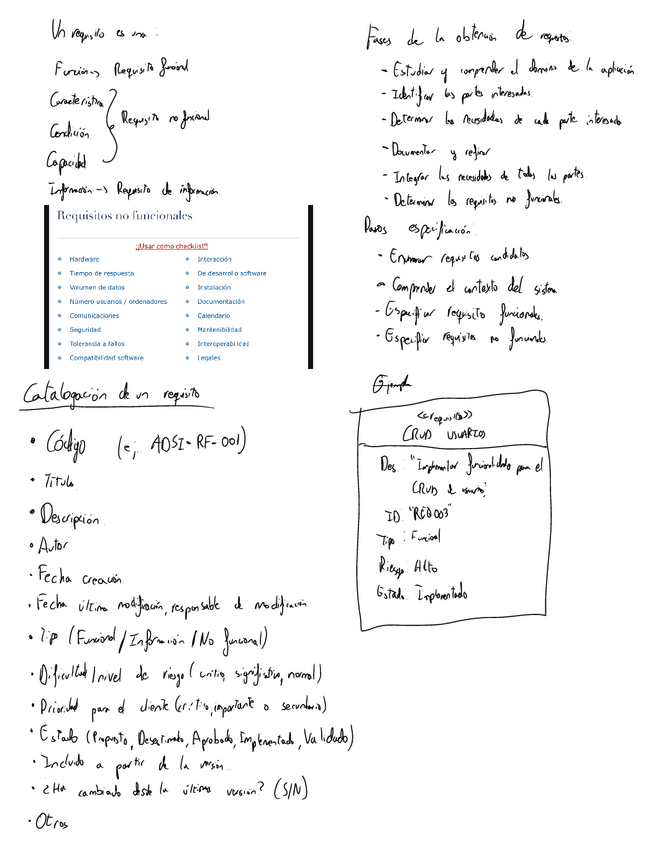 Un requisito es una:
Función -> Requisito funcional
Característica
Condición
Capacidad
Requisito no funcional
Información -> Requisito de información
Requisitos no funcionales
¡¡Usar como checklist!!
Hardware
Tiempo de respuesta
Volumen de datos
Número usuarios / ordenadores
Comunicaciones
Seguridad
Tolerancia a fallos
Compatibilidad software
Interacción
De desarrollo software
Instalación
Documentación
Calendario
Mantenibilidad
Interoperabilidad
Legales
Catalogación de un requisito
• Código (ej ADSI-RF-001)
• Título
• Descripción
• Autor
• Fecha creación
• Fecha última modificación, responsable de modificación
• Tipo (Funcional / Información / No funcional)
• Dificultad / nivel de riesgo (crítico, significativo, normal)
• Prioridad para el cliente (crítico, importante o secundario)
• Estado (Propuesto, Desestimado, Aprobado, Implementado, Validado)
• Incluido a partir de la versión...
• ¿Ha cambiado desde la última versión? (S/N)
• Otros
Fases de la obtención de requisitos:
- Estudiar y comprender el dominio de la aplicación.
- Identificar las partes interesadas.
- Determinar las necesidades de cada parte interesada
- Documentar y refinar
- Integrar las necesidades de todas las partes.
- Determinar los requisitos no funcionales.
Pasos especificación:
- Enumerar requisitos candidatos
- Comprender el contexto del sistema
- Especificar requisitos funcionales.
- Especificar requisitos no funcionales.
Ejemplo
<<requisito>>
CRUD USUARIO
Des: "Implementar funcionalidad para el
CRUD de usuario"
ID "REQ003"
Tipo: Funcional
Riesgo Alto
Estado Implementado